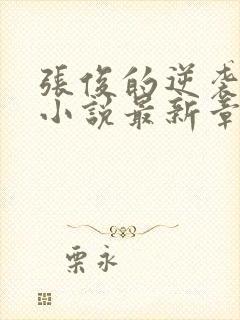 張俊的逆袭
小說最新章
栗永